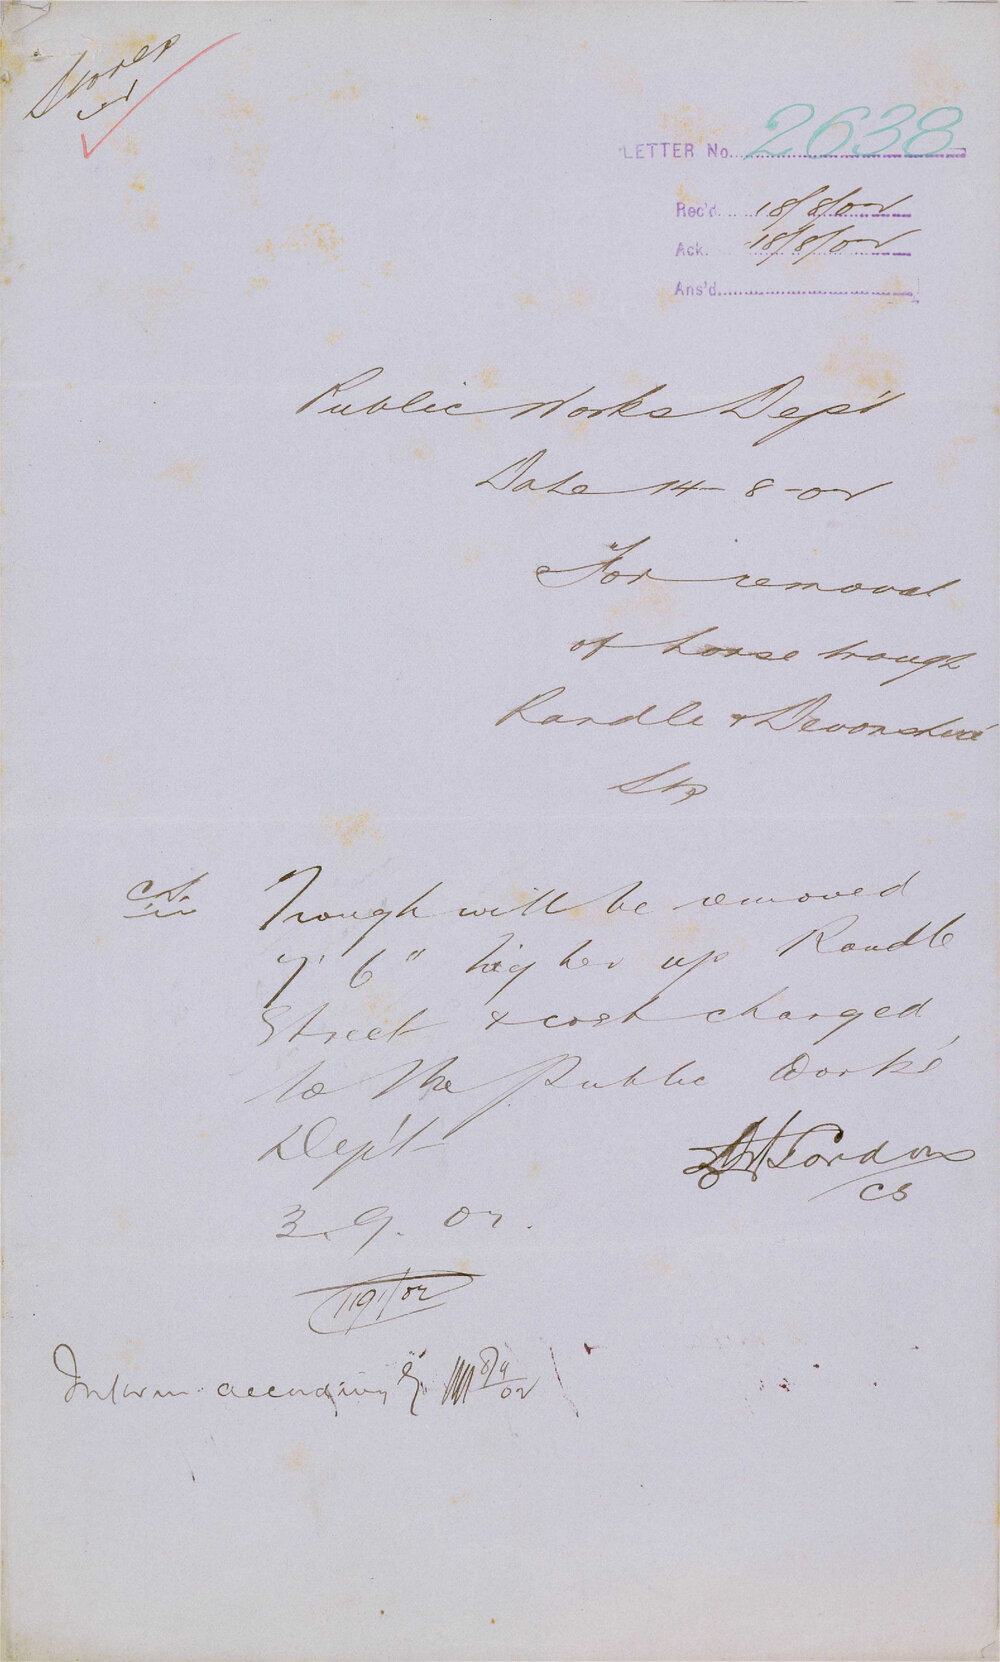 Stores
LETTER No. 2638
Rec'd. 18/8/02
Ack. 18/8/02
Ans'd.
Public Works Dep't
Date 14-8-02
For removal
of horse trough
Randle & Devonshire
Sts
C.S.
Trough will be removed
7' 6" higher up Randle
Street & cost charged
to the Public Works
Dep't
Gordon
CS
3.9.02.
Inform accordingly 8/9/02